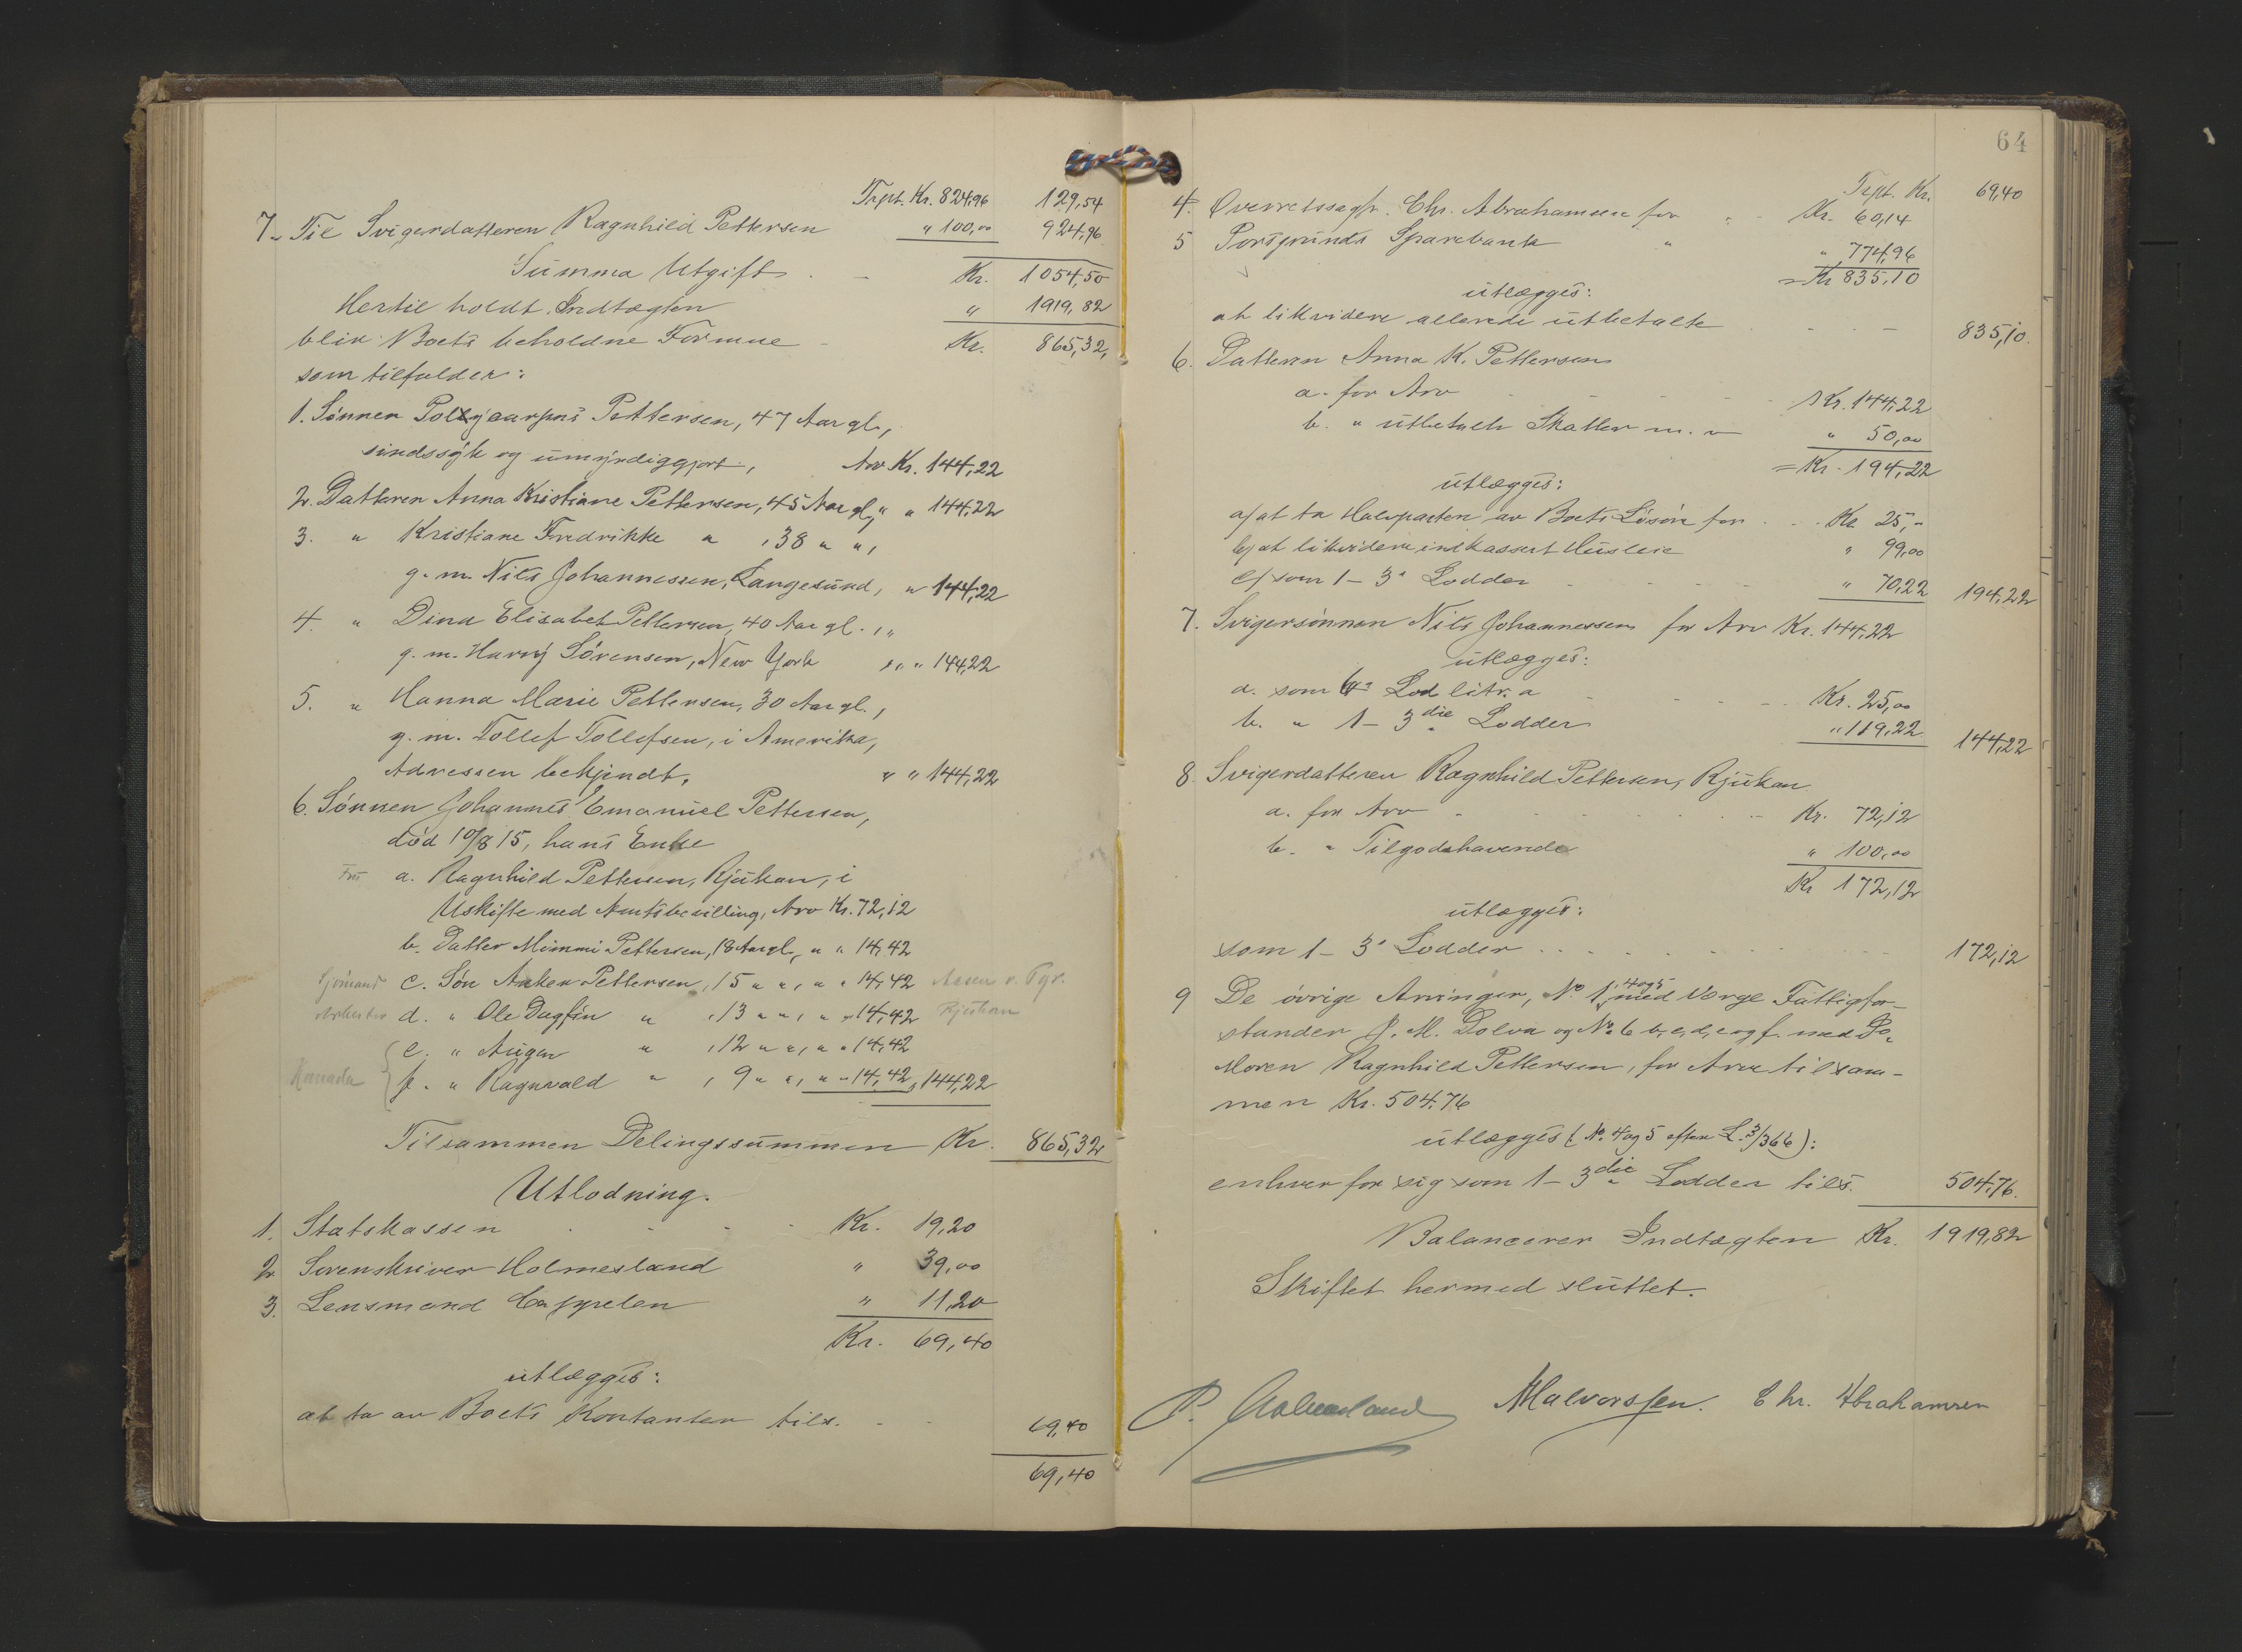 Trpt. Kr. 824,96 129,54
7. Til Svigerdatteren Ragnhild Pettersen " 100,00 924,96
Summa Utgift Kr. 1054,50
Hertil holdt Indtægten " 1919,82
blir Boets beholdne Formue Kr. 865,32,
som tilfalder:
1. Sönnen Pettersen, 47 Aar gl.,
sindssyk og umyndiggjort, Arv Kr. 144,22
2. Datteren Anna Kristiane Pettersen, 45 Aar gl., " " 144,22
3. " Kristiane Fredrikke " , 38 " ",
g. m. Nils Johannessen, Langesund, " 144,22
4. " Dina Elisabet Pettersen, 40 Aar gl. , "
g. m. Harry Sörensen, New York " , " 144,22
5. " Hanna Marie Pettersen, 30 Aar gl.,
g. m. Tollef Tollefsen, i Amerika,
Adressen bekjendt, " " 144,22
6. Sönnen Johannes Emanuel Pettersen,
död 10/8 15, hans Enke
Fru a. Ragnhild Pettersen, Rjukan, i
Uskifte med Amtsbevilling, Arv Kr. 72,12
b. Datter Mimmi Pettersen, 18 Aar gl., " " 14,42
Sjömand c. Sön Anker Pettersen, 15 " ", " " 14,42
d. " Ole Dagfin " , 13 " ", " " 14,42 Rjukan
e. " Augen " , 12 " ", " " 14,42
Kanada f. " Ragnvald " , 9 " ", " " 14,42, 144,22
Tilsammen Delingssummen Kr. 865,32
Utlodning.
1. Statskassen Kr. 19,20
2. Sorenskriver Holmesland " 39,00
3. Lensmand Cappelen " 11,20
Kr. 69,40
utlægges:
at ta av Boets Kontanter tils. 69,40
69,40
64
Trpt. Kr. 69,40
4. Overretssagf. Chr. Abrahamsen for " Kr. 60,14
5 Porsgrunds Sparebank " " 774,96
= Kr 835,10
utlægges:
at likvidere allerede utbetalte 835,10.
6. Datteren Anna K. Pettersen
a. for Arv Kr. 144,22
b. " utbetalt Skatter m. v " 50,00
= Kr. 194,22
utlægges:
a/ at ta Halvparten av Boets Lösöre for Kr 25,-
b/ at likvidere indkassert Husleie " 99,00
c/ som 1-3" Lodder " 70,22 194,22
7. Svigersönnen Nils Johannessen for Arv Kr. 144,22
utlægges:
a. som 6" Lod litr. a Kr. 25,00
b. " 1-3die Lodder " 119,22 144,22
8. Svigerdatteren Ragnhild Pettersen, Rjukan
a. for Arv Kr. 72,12
b. " Tilgodehavende " 100,00
Kr 172,12
utlægges:
som 1-3" Lodder 172,12
9 De övrige Arvinger, No. 1, 4 og 5 med Verge Fattigfor-
stander J. M. Dolva og No. 6 b, c, d, e og f. med
Moren Ragnhild Pettersen, for Arv tilsam-
men Kr. 504,76
utlægges (No. 4 og 5 efter L. 3/366):
enhver for sig som 1-3die Lodder tils. 504,76.
Balancerer Indtægten Kr. 1919,82
Skiftet hermed sluttet.
P. Holmesland Halvorssen. Chr. Abrahamsen